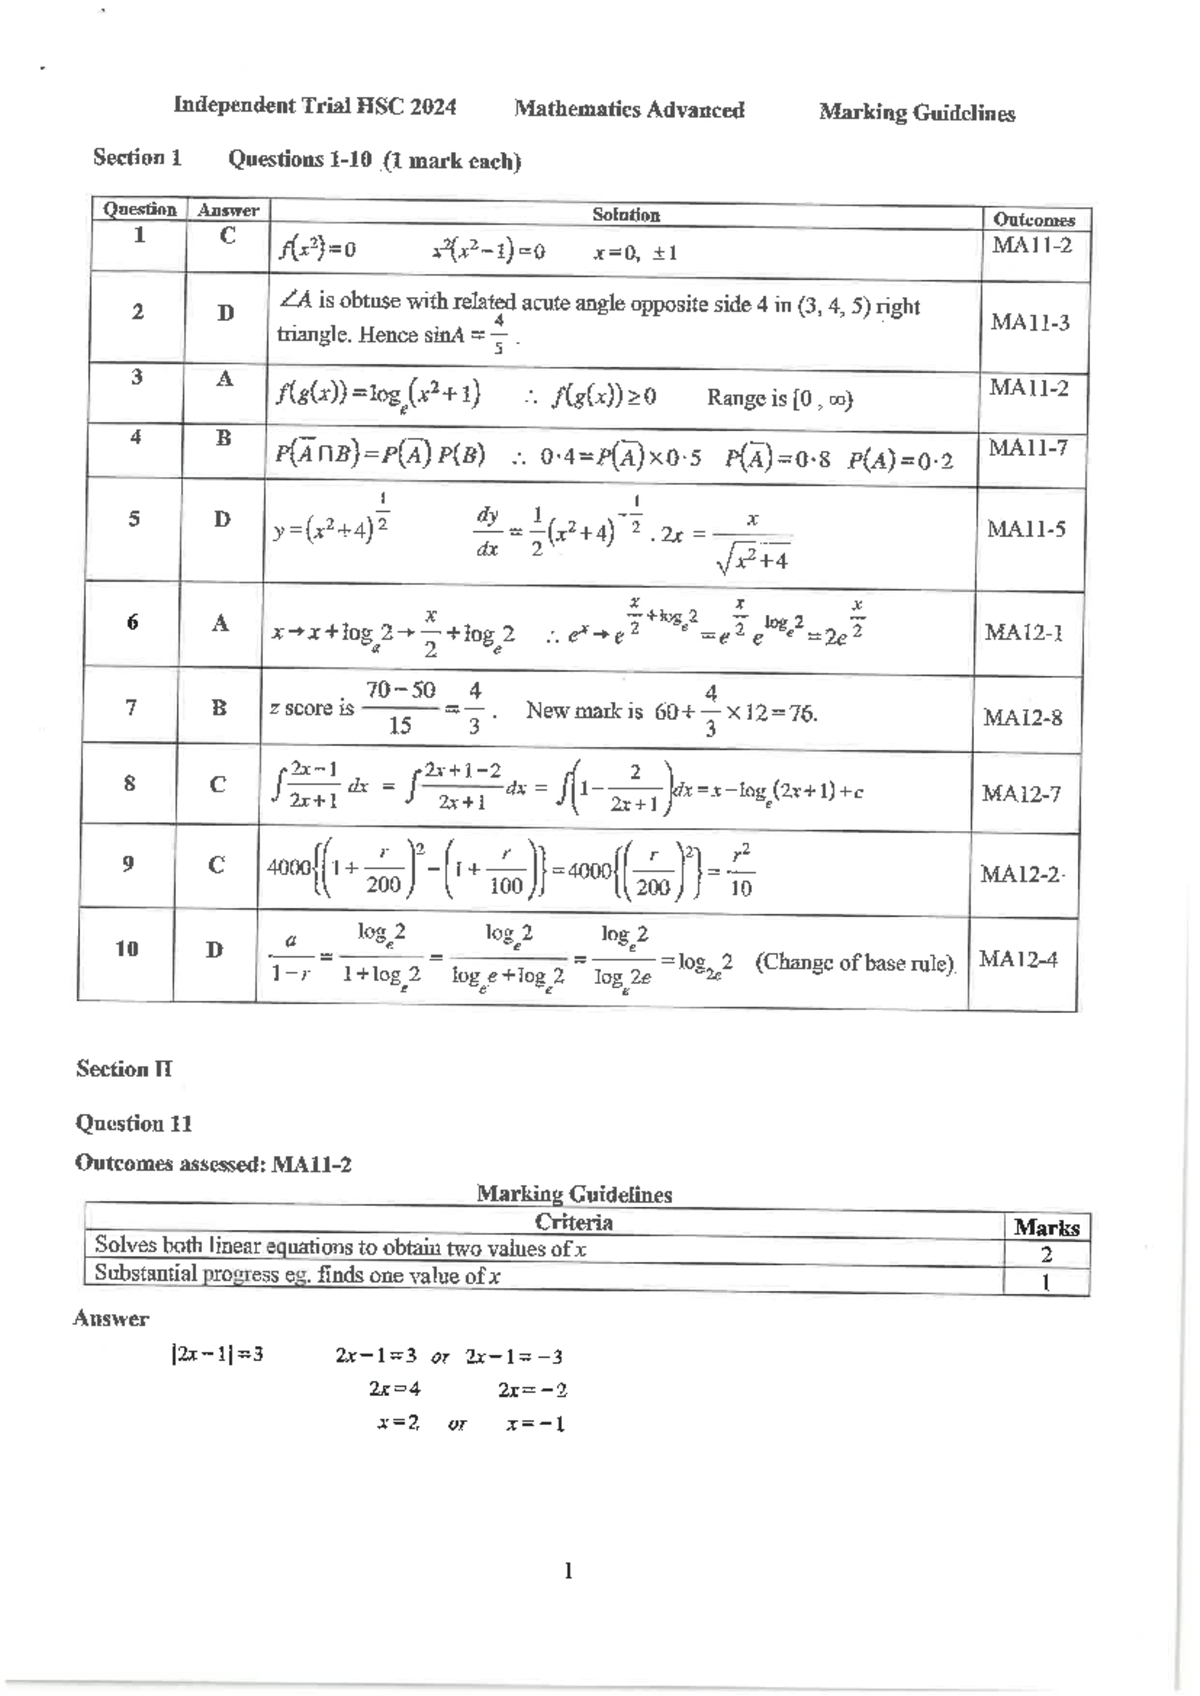 Independent Trial HSC 2024 Mathematics Advanced Marking Guidelines
Section 1 Questions 1-10 (1 mark each)
Question Answer Solution Outcomes
1 C f(x²)=0 x²(x²−1)=0 x=0, ±1 MA11-2
2 D ∠A is obtuse with related acute angle opposite side 4 in (3, 4, 5) right
triangle. Hence sinA = 4/5 . MA11-3
3 A f(g(x))=logₑ(x²+1) ∴ f(g(x))≥0 Range is [0 , ∞) MA11-2
4 B P(A̅∩B)=P(A̅) P(B) ∴ 0·4=P(A̅)×0·5 P(A̅)=0·8 P(A)=0·2 MA11-7
5 D y=(x²+4)^(1/2) dy/dx = 1/2(x²+4)^(−1/2) . 2x = x/√(x²+4) MA11-5
6 A x→x+logₑ2→x/2+logₑ2 ∴ eˣ→e^(x/2+logₑ2)=e^(x/2) e^(logₑ2)=2e^(x/2) MA12-1
7 B z score is (70−50)/15=4/3 . New mark is 60+4/3×12=76. MA12-8
8 C ∫(2x−1)/(2x+1) dx = ∫(2x+1−2)/(2x+1) dx = ∫(1−2/(2x+1))dx=x−logₑ(2x+1)+c MA12-7
9 C 4000{(1+r/200)²−(1+r/100)}=4000{(r/200)²}=r²/10 MA12-2
10 D a/(1−r) = logₑ2/(1+logₑ2) = logₑ2/(logₑe+logₑ2) = logₑ2/logₑ2e =log₂ₑ2 (Change of base rule). MA12-4
Section II
Question 11
Outcomes assessed: MA11-2
Marking Guidelines
Criteria Marks
Solves both linear equations to obtain two values of x 2
Substantial progress eg. finds one value of x 1
Answer
|2x−1|=3 2x−1=3 or 2x−1=−3
2x=4 2x=−2
x=2, or x=−1
1